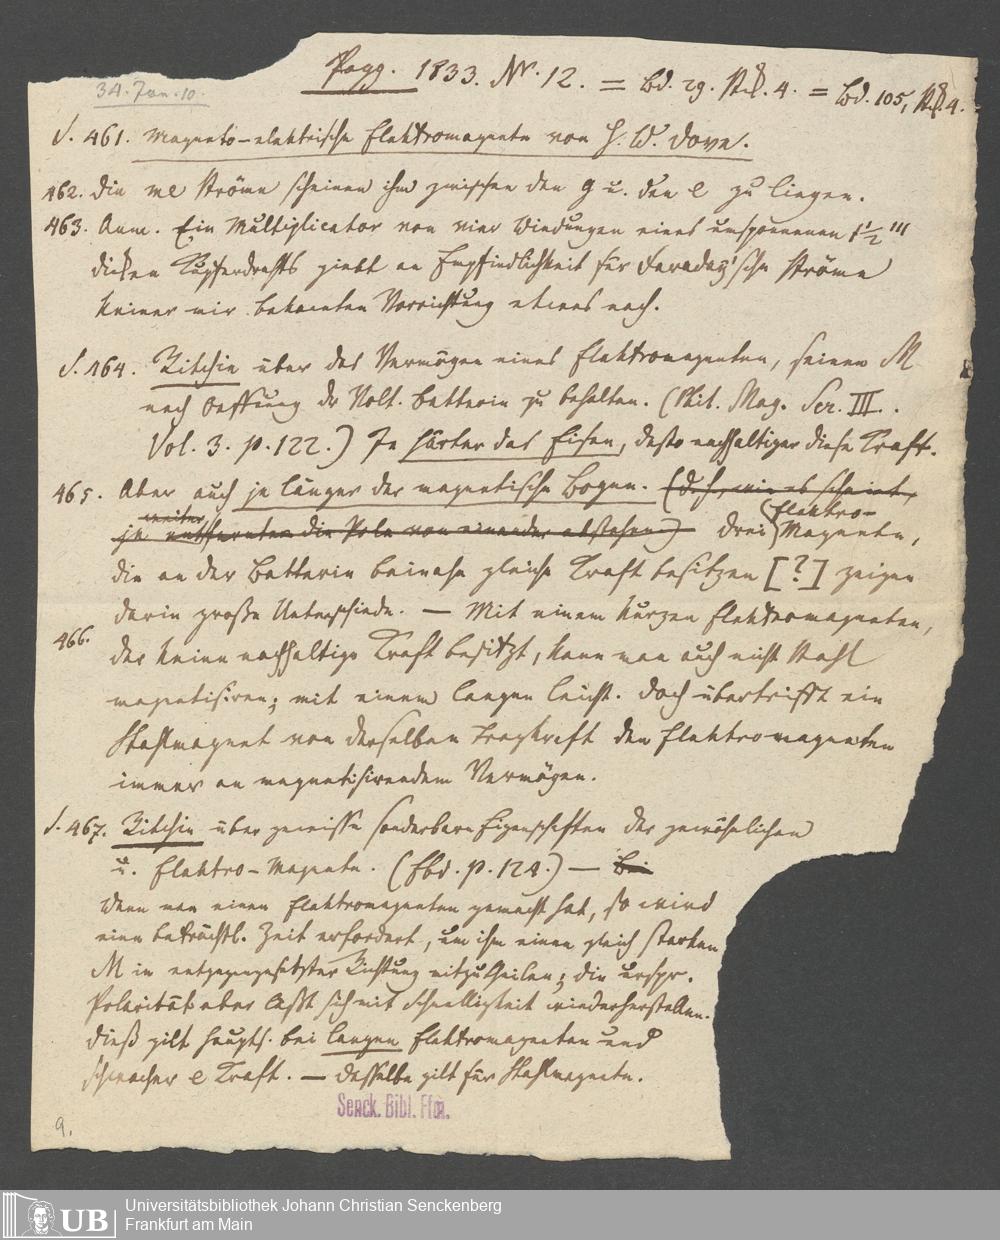 34. Jan. 10.
Pogg. 1833. Nr. 12. = Bd. 29. Stck. 4. = Bd. 105, Stck. 4.
S. 461. Magneto-elektrische Elektromagnete von H. W. Dove.
462. Die me Ströme scheinen ihm zwischen den g u. den e zu liegen.
463. Anm. Ein Multiplicator von vier Windungen eines umsponnenen 1 1/2'''
dicken Kupferdraths giebt an Empfindlichkeit für Faraday'sche Ströme
keiner mir bekannten Vorrichtung etwas nach.
S. 464. Ritchie über das Vermögen eines Elektromagneten, seinen M
nach Oeffnung der Volt. Batterie zu behalten. (Phil. Mag. Ser. III.
Vol. 3. p. 122.) Je härter das Eisen, desto nachhaltiger diese Kraft.
465. Aber auch je länger der magnetische Bogen. (d. h. wie es scheint,
weiter Elektro-
je entfernter die Pole von einander abstehen) Drei Magnete,
die an der Batterie beinahe gleiche Kraft besitzen [?] zeigen
darin große Unterschiede. — Mit einem kurzen Elektromagneten,
466. der keine nachhaltige Kraft besitzt, kann man auch nicht Stahl
magnetisiren; mit einem langen leicht. Doch übertrifft ein
Stahlmagnet von derselben Tragkraft den Elektromagneten
immer an magnetisirendem Vermögen.
S. 467. Ritchie über gewisse sonderbare Eigenschaften der gewöhnlichen
u. Elektro-Magnete. (Ebd. p. 124.) — Bei
Wenn man einen Elektromagneten gemacht hat, so wird
eine beträchtl. Zeit erfordert, um ihm einen gleich starken
M in entgegengesetzter Richtung mitzutheilen; die urspr.
Polarität aber läßt sich mit Schnelligkeit wiederherstellen.
Dieß gilt haupts. bei langen Elektromagneten und
schwacher e Kraft. — Dasselbe gilt für Stahlmagnete.
Senck. Bibl. Ffm.
9.
UB
Universitätsbibliothek Johann Christian Senckenberg
Frankfurt am Main